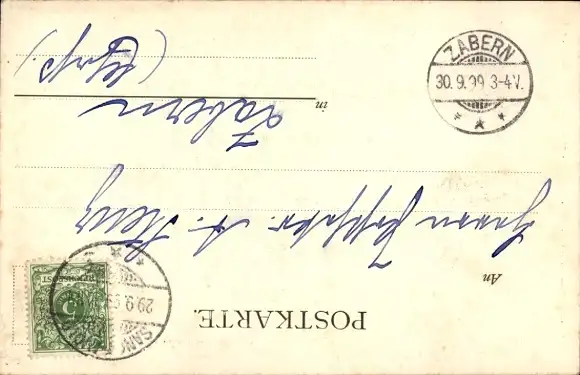 POSTKARTE.
An
Herrn
in
Zabern
(Els.)
ZABERN
30.9.99 3-4V.
29.9.99
REICHSPOST
5